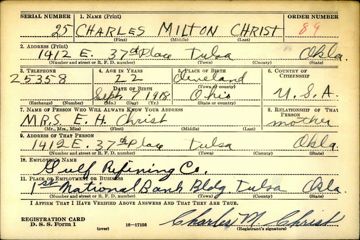 SERIAL NUMBER 1. NAME (Print) ORDER NUMBER
25 CHARLES MILTON CHRIST 89
(First) (Middle) (Last)
2. ADDRESS (Print)
1912 E. 37th Place Tulsa Okla.
(Number and street or R. F. D. number) (Town) (County) (State)
3. TELEPHONE 4. AGE IN YEARS 5. PLACE OF BIRTH 6. COUNTRY OF CITIZENSHIP
25358 22 Cleveland
DATE OF BIRTH (Town or county)
Sept 7 1918 Ohio U.S.A.
(Exchange) (Number) (Mo.) (Day) (Yr.) (State or country)
7. NAME OF PERSON WHO WILL ALWAYS KNOW YOUR ADDRESS 8. RELATIONSHIP OF THAT PERSON
MRS. E. H. Christ mother
(Mr., Mrs., Miss) (First) (Middle) (Last)
9. ADDRESS OF THAT PERSON
1912 E. 37th Place Tulsa Okla.
(Number and street or R. F. D. number) (Town) (County) (State)
10. EMPLOYER'S NAME
Gulf Refining Co.
11. PLACE OF EMPLOYMENT OR BUSINESS
1st National Bank Bldg Tulsa Okla.
(Number and street or R. F. D. number) (Town) (County) (State)
I AFFIRM THAT I HAVE VERIFIED ABOVE ANSWERS AND THAT THEY ARE TRUE.
REGISTRATION CARD
D. S. S. Form 1 16-17105 Charles M. Christ